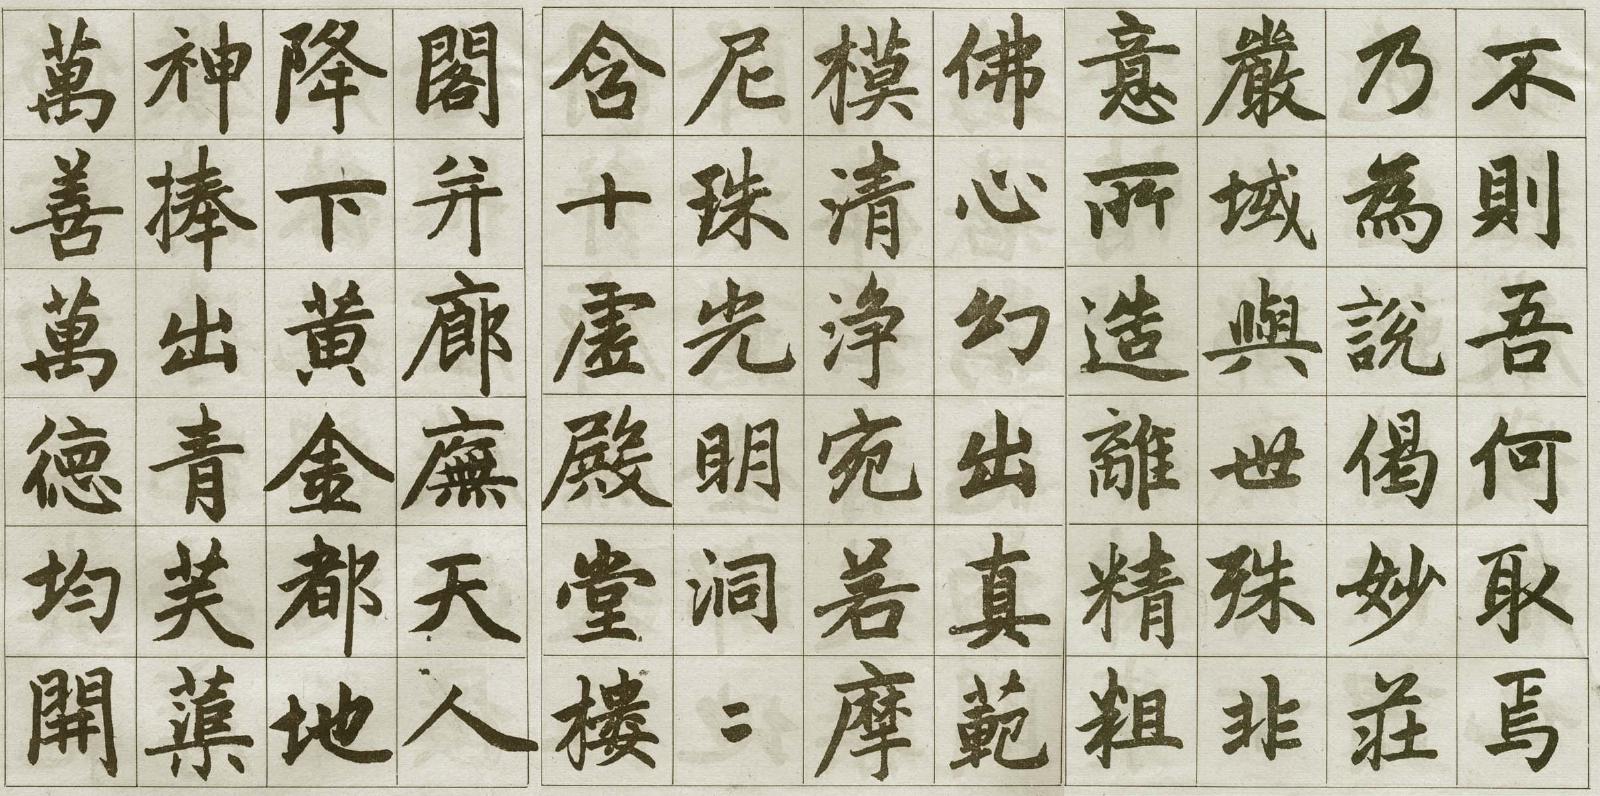 不則吾何取焉
乃為說偈妙莊
嚴域與世殊非
意所造離精粗
佛心幻出真範
模清淨宛若摩
尼珠光明洞二
含十虛殿堂樓
閣并廊廡天人
降下黃金都地
神捧出青芙蕖
萬善萬德均開